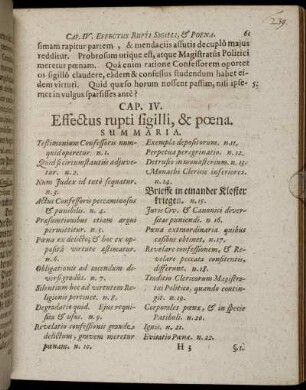 239.
CAP. IV. EFFECTUS RUPTI SIGILLI, & POENA. 61
simam rapitur partem, & mendaciis assutis decuplò majus
redditur. Probrosum utique est, atque Magistratûs Politici
meretur pœnam. Quâ enim ratione Confessorem oportet
os sigillô claudere, eâdem & confessus studendum habet ei-
dem virtuti. Quid quæso horum nosset passim, nisi ipse-
met in vulgus sparsisses antè?
CAP. IV.
Effectus rupti sigilli, & pœna.
SUMMARIA.
Testimonium Confessoris num-
quid operetur. n. 1.
Quid si circumstantiis adjuve-
tur. n. 2.
Num Judex id tutò sequatur.
n. 3.
Actus Confessoris peccaminosus
& punibilis. n. 4.
Præsumtionibus etiam argui
permittitur. n. 5.
Pœna ex delicto, & hoc ex op-
positâ virtute æstimatur.
n. 6.
Obligationis ad tacendum di-
versi gradûs. n. 7.
Silentium hoc ad virtutem Re-
ligionis pertinet. n. 8.
Degradatio quid. Ejus requi-
sita & usus. n. 9.
Revelatio confessionis grande
delictum, gravem meretur
pœnam. n. 10.
Exempla depositorum. n. 11.
Perpetua peregrinatio. n. 12.
Detrusio in monasterium. n. 13.
Monachi Clericis inferiores.
n. 14.
Brieffe in einander Kloster
kriegen. n. 15.
Juris Civ. & Canonici diver-
sitas puniendi. n. 16.
Pœna extraordinaria quibus
casibus obtinet. n. 17.
Revelare confessionem, & Re-
velare peccata confitentis,
differunt. n. 18.
Traditio Clericorum Magistra-
tui Politico, quando contin-
git. n. 19.
Corporales pœnæ, & in specie
Patibuli. n. 20.
Ignis. n. 21.
Evitatio Pœnæ. n. 22.
H 3 §. 1.